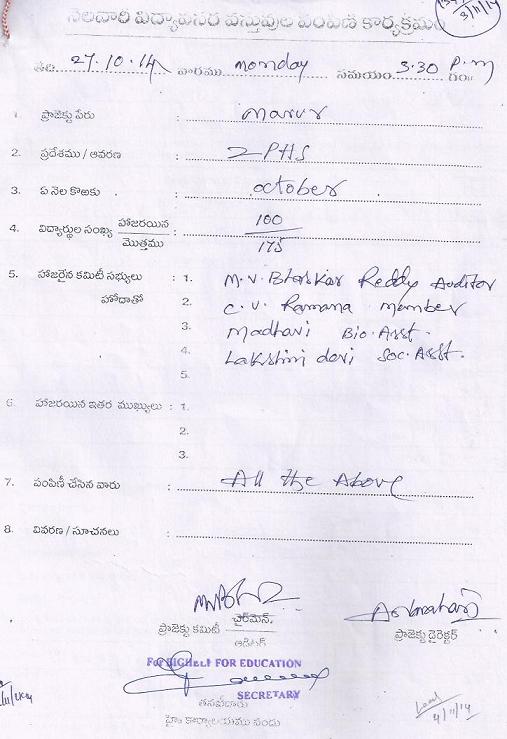 నెలవారి విద్యావసర వస్తువుల పంపిణి కార్యక్రమం
3/11/14
తేది 27.10.14 వారము monday సమయం 3.30 P.m గం॥
1. ప్రాజెక్టు పేరు : marur
2. ప్రదేశము / ఆవరణ : ZPHS
3. ఏ నెల కొఱకు : october
4. విద్యార్థుల సంఖ్య హాజరయిన / మొత్తము : 100 / 175
5. హాజరైన కమిటీ సభ్యులు : 1. M.V. Bhaskar Reddy Auditor
హోదాతో 2. C.V. Ramana member
3. madhavi Bio.Asst.
4. Lakshmi devi Soc.Asst.
5.
6. హాజరయిన ఇతర ముఖ్యులు : 1.
2.
3.
7. పంపిణీ చేసిన వారు : All the Above
8. వివరణ / సూచనలు :
ప్రాజెక్టు కమిటీ చైర్‌మెన్. / ఆడిటర్
ప్రాజెక్టు డైరెక్టర్
FOR EDUCATION
SECRETARY
తనవీదారు
హై; కార్యాలయము నందు
4/11/14